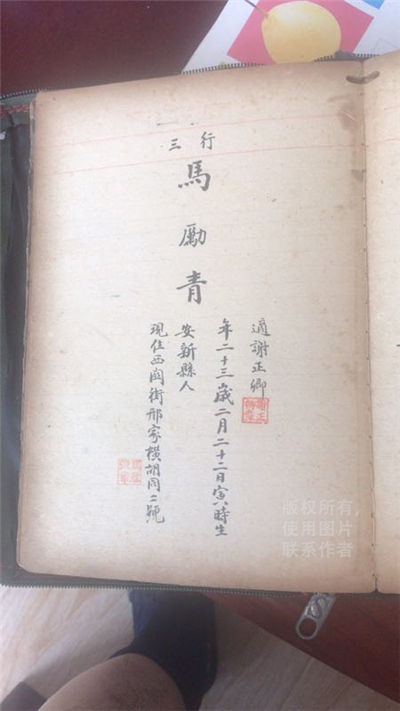 行三
馬勵青
適謝正卿
年二十三歲二月二十二日寅時生
安新縣人
現住西関街邢家橫胡同二號
版权所有,
使用图片
联系作者